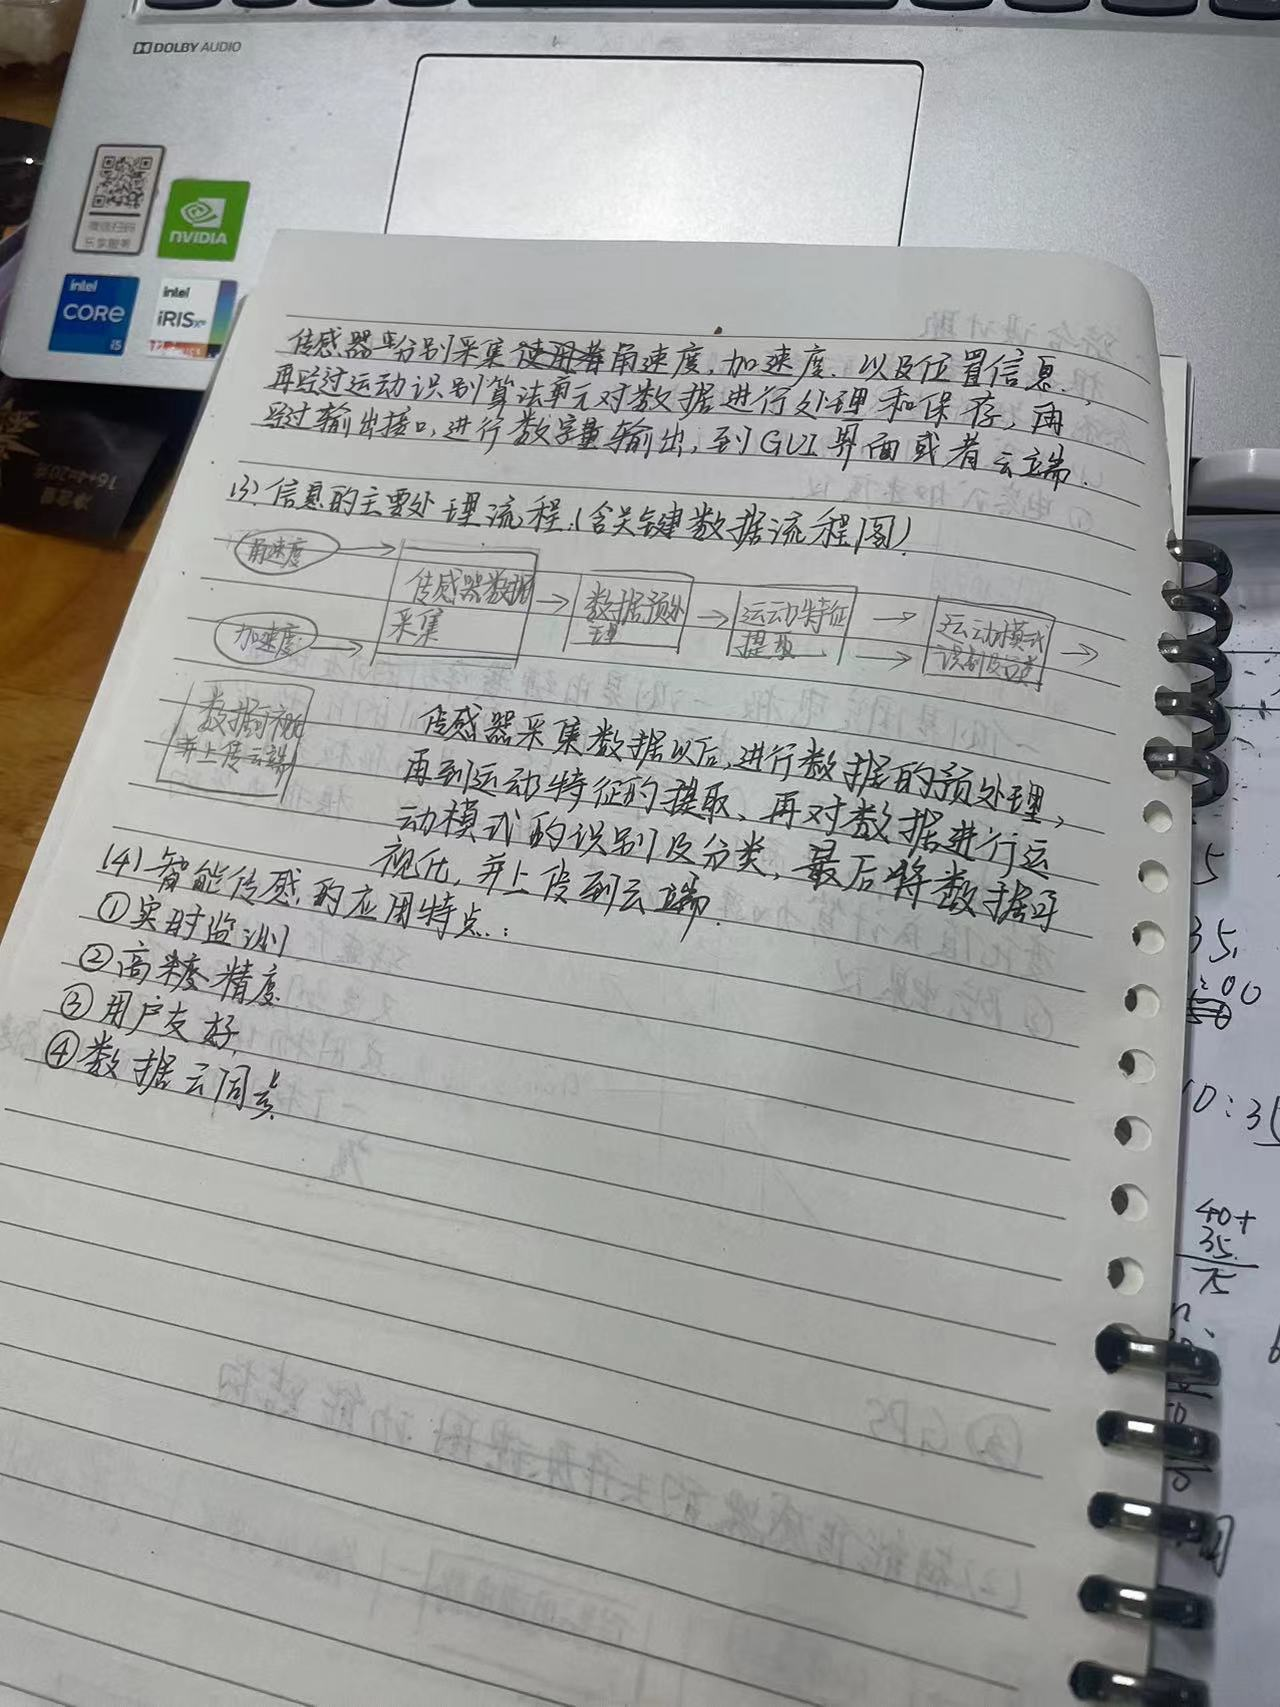 DOLBY AUDIO
微信扫码
乐享服务
NVIDIA
intel
CORE
i5
intel
iRIS xe
传感器分别采集角速度，加速度，以及位置信息，
再经过运动识别算法单元对数据进行处理和保存，再
经过输出接口，进行数字量输出，到GUI界面或者云端.
(3) 信息的主要处理流程.(含关键数据流程图)
角速度
加速度
传感器数据
采集
数据预处
理
运动特征
提取
运动模式
识别及分类
数据可视
并上传云端
传感器采集数据以后，进行数据的预处理，
再到运动特征的提取、再对数据进行运
动模式的识别及分类，最后将数据可
视化，并上传到云端.
(4) 智能传感的应用特点：
①实时监测
②高精度
③用户友好
④数据云同步
5
35
10:35
40+
35
75